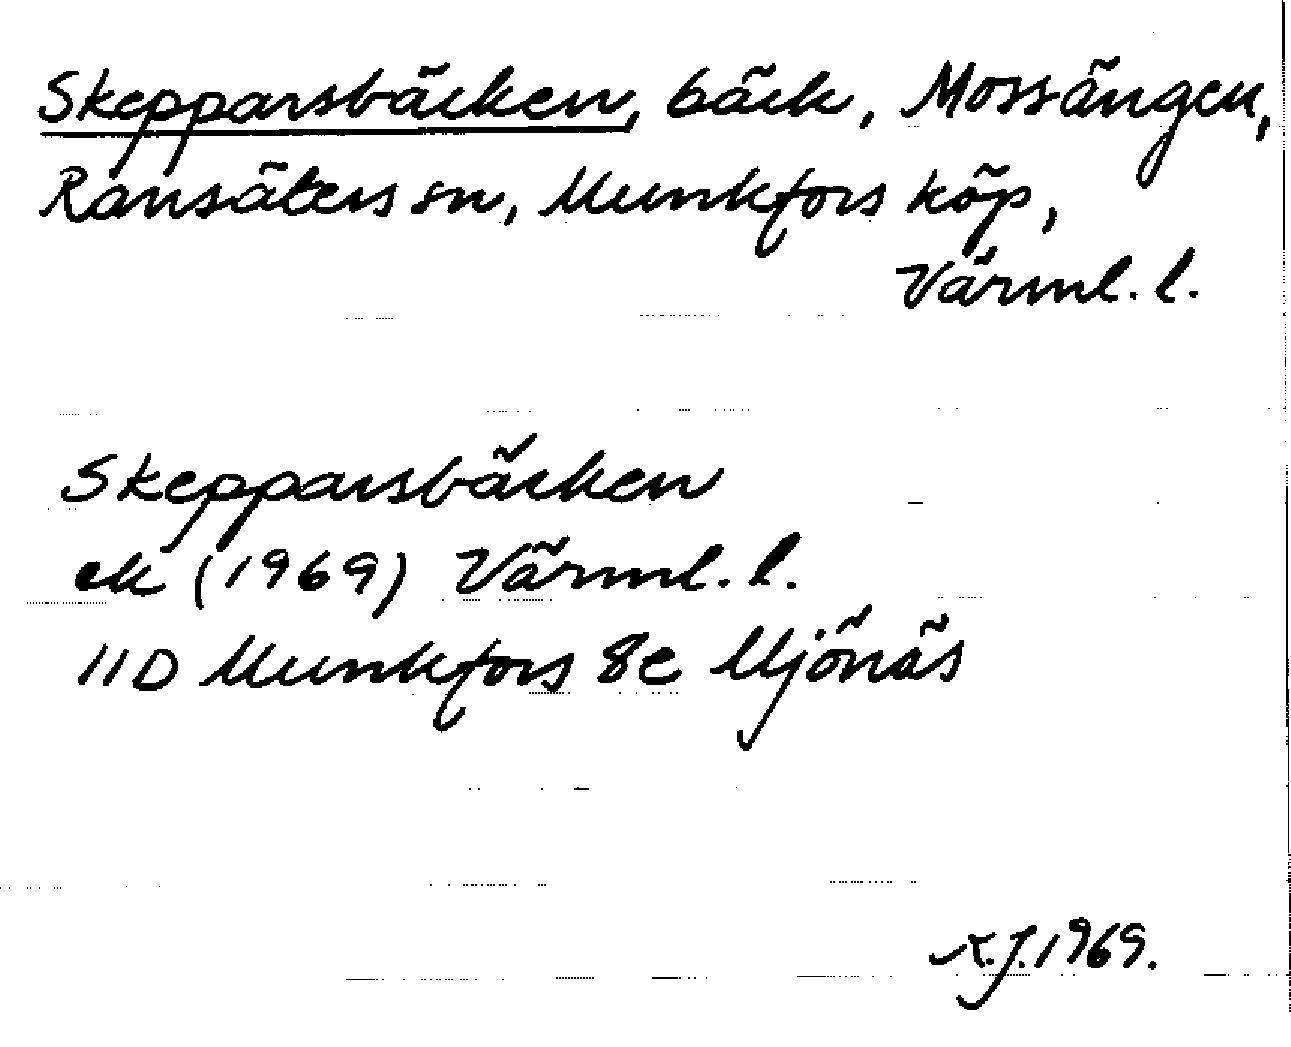 Skepparsbäcken, bäck, Mossängen,
Ransäters sn, Munkfors köp,
Värml. l.
Skepparsbäcken
ek (1969) Värml. l.
11D Munkfors 8e Mjönäs
K.J. 1969.